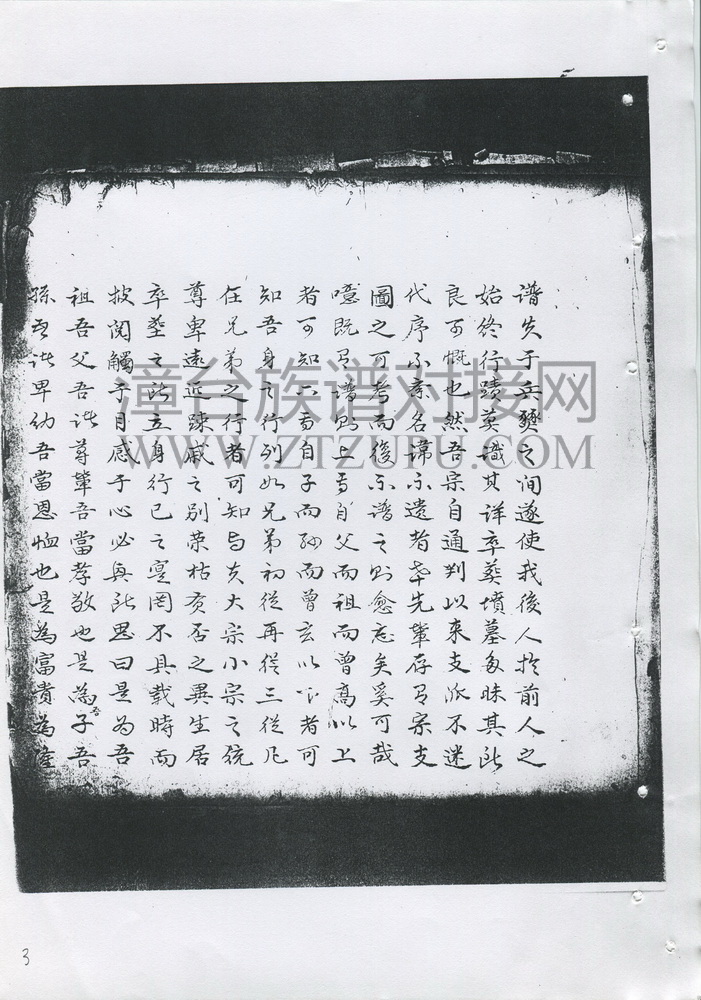 譜失于兵燹之间遂使我後人於前人之
始终行蹟莫識其详卒葬墳墓多昧其所
良可慨也然吾宗自通判以来支派不迷
代序不紊名諱不遺者幸先輩存有宗支
圖之可考而後不譜之则愈忘矣奚可哉
噫既有譜则上而自父而祖而曾高以上
者可知下而自子而孙而曾玄以下者可
知吾身之行列如兄弟初從再從三從凡
在兄弟之行者可知与夫大宗小宗之统
尊卑遠近踈戚之别荣枯贤否之異生居
卒塟之所立身行已之寔罔不具載時而
披阅觸于目感于心必興所思曰是为吾
祖吾父吾諸尊輩吾當孝敬也是為子吾
孫吾諸卑幼吾當恩恤也是為富貴為
漳台族谱对接网
WWW.ZTZUPU.COM
3